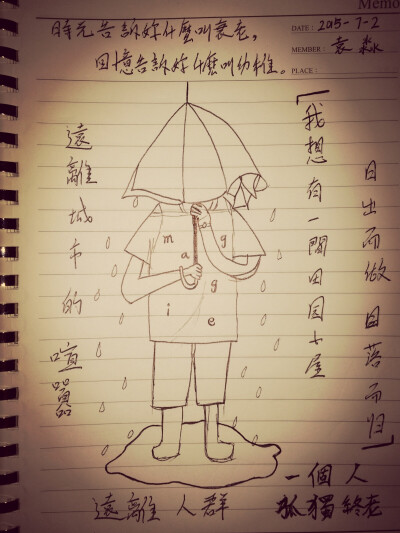 Memo
時光告訴妳什麼叫衰老，
DATE : 2015-7-2
回憶告訴妳什麼叫幼稚。
MEMBER : 袁淼
PLACE :
「我想有一間田园小屋
日出而做 日落而归」
遠離城市的喧囂
m
g
a
g
i
e
一個人
遠離人群
孤獨終老